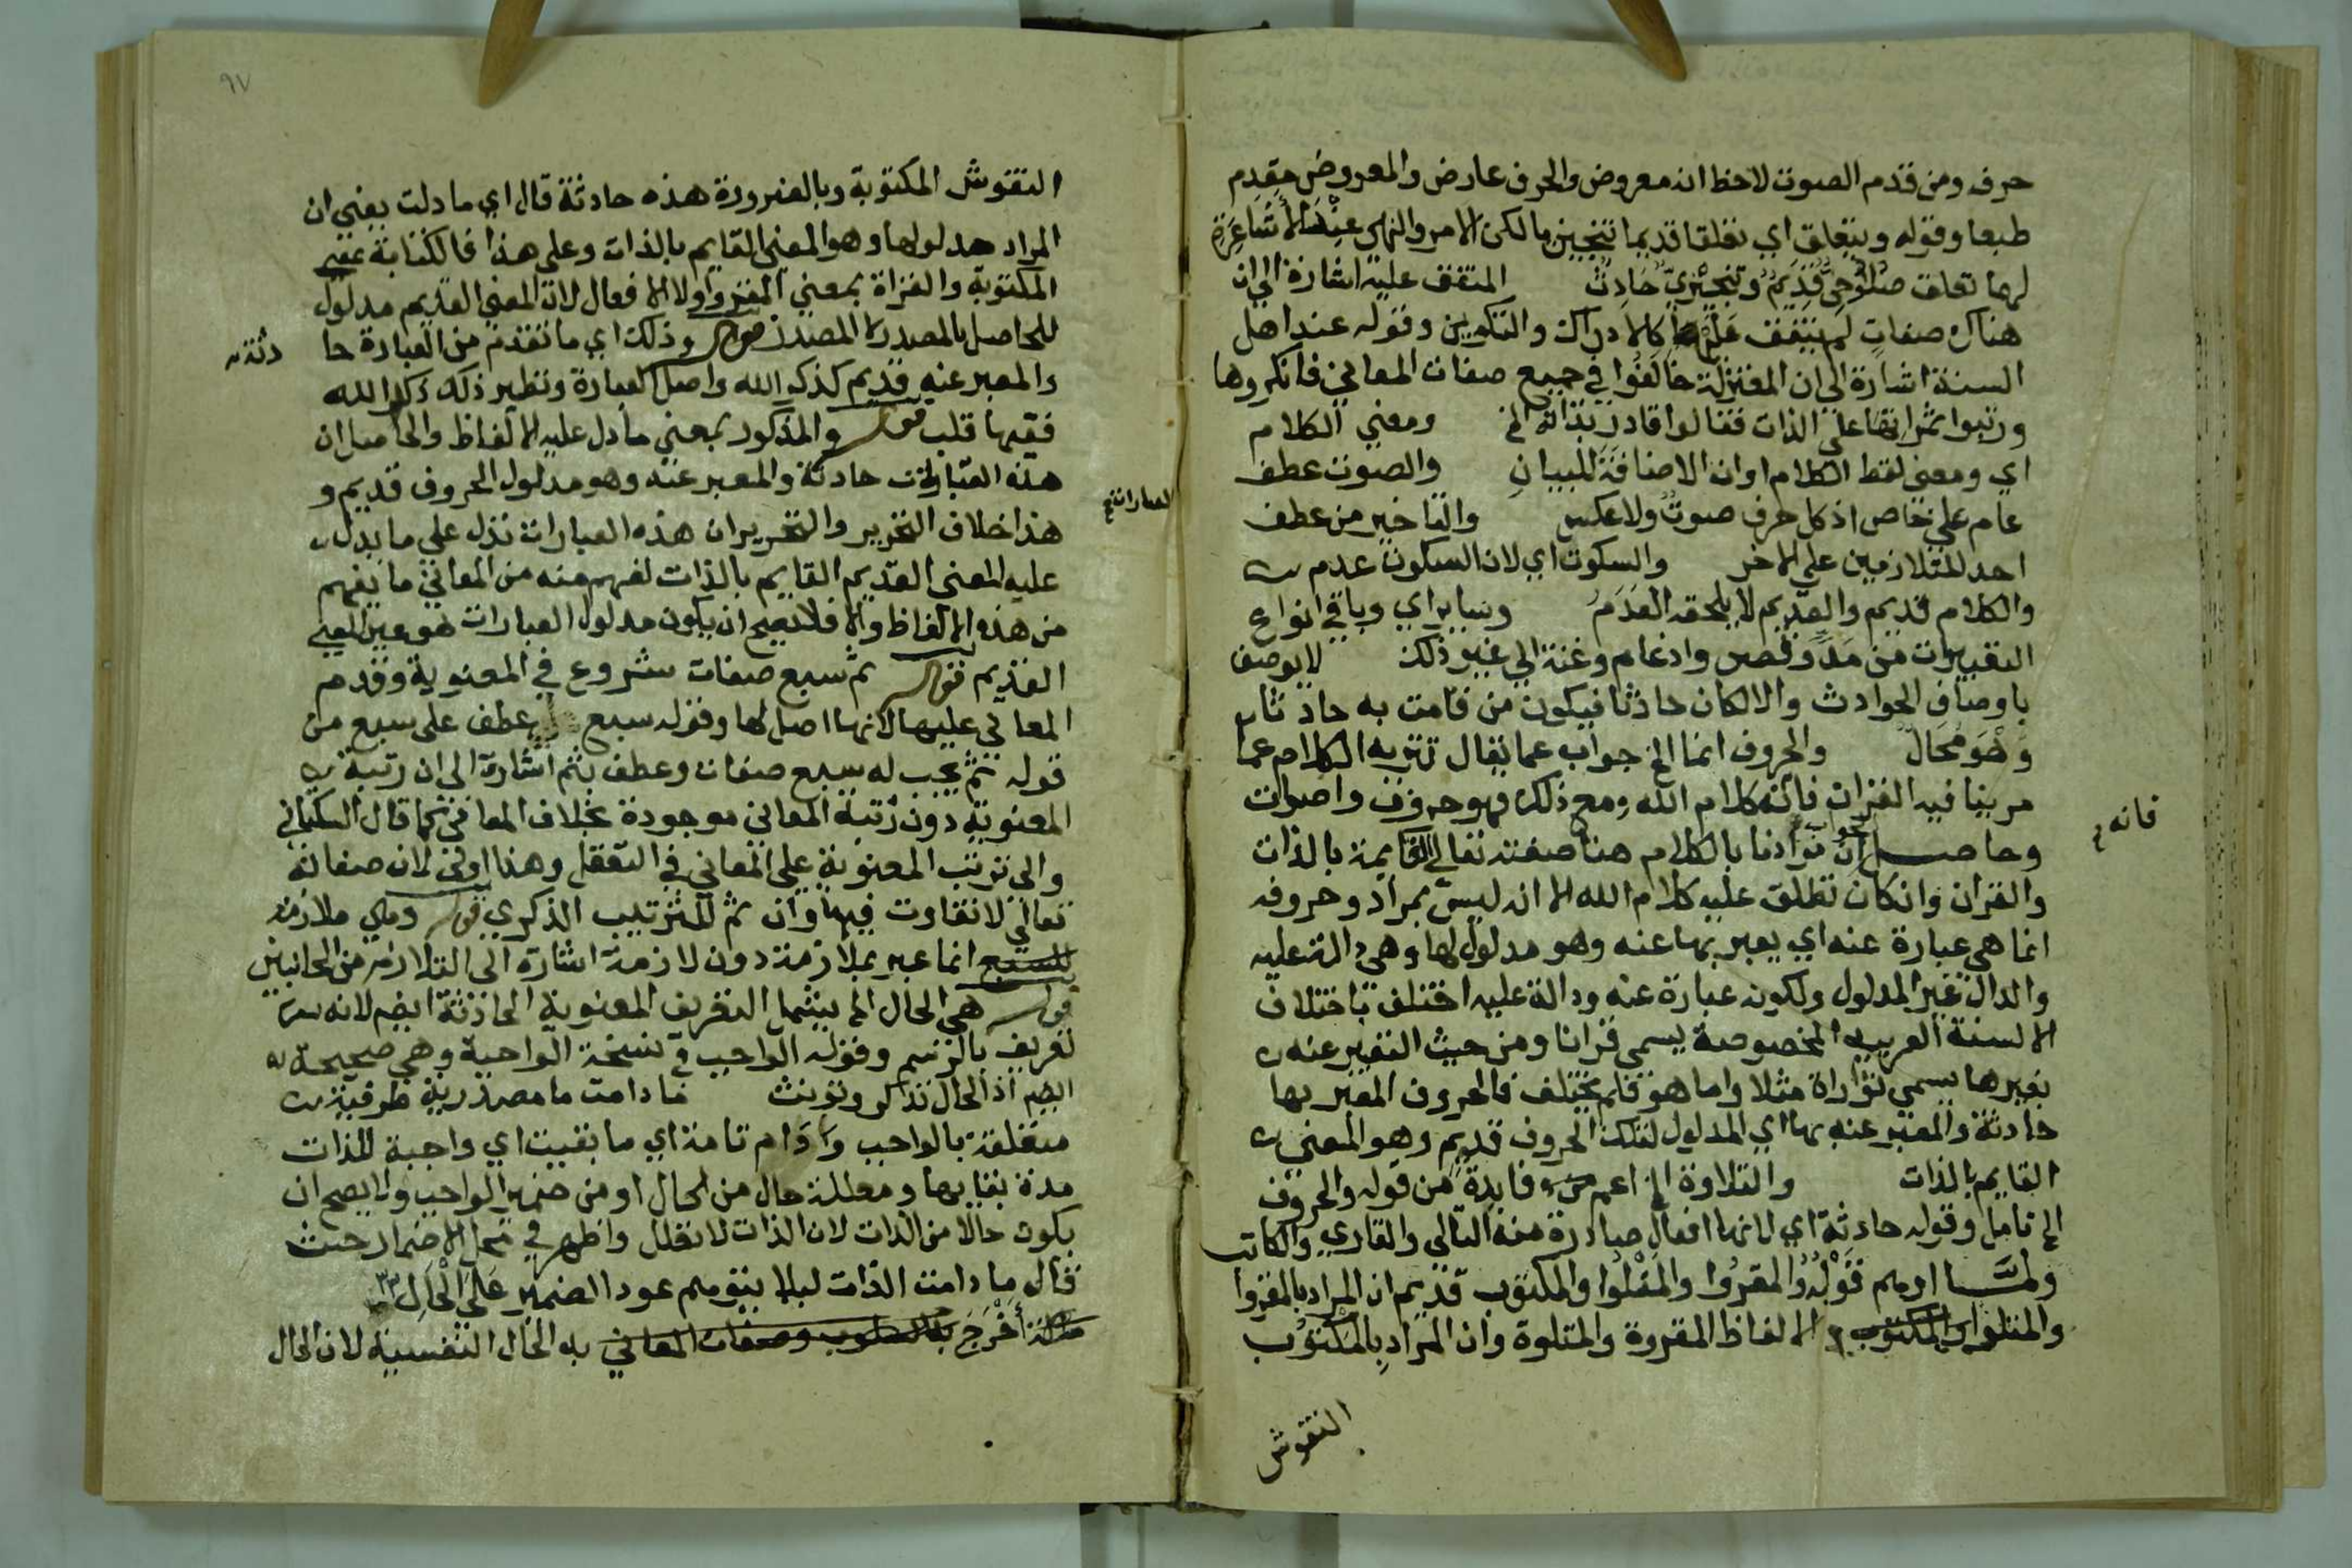 حرف ومن قدم الصوت لاحظ انه معروض والحرف عارض والمعروض مقدم
طبعا وقوله ويتعلق اي تعلقا قديما تنجيزيا لكن الامر والنهى عند الأشاعرة
لهما تعلق صلوحى قديم وتنجيزي حادث المتفق عليه اشارة الى ان
هناك صفات لم يتفق عليها كالادراك والتكوين وقوله عند اهل
السنة اشارة الى ان المعتزلة خالفوا في جميع صفات المعاني فانكروها
ورتبوا ثمراتها على الذات فقالوا قادر بذاته الخ ومعنى الكلام
اي ومعنى لفظ الكلام او ان الاضافة للبيان والصوت عطف
عام علي خاص اذ كل حرف صوت ولا عكس والتاخير من عطف
احد المتلازمين على الاخر والسكوت اي لان السكوت عدم
والكلام قديم والقديم لا يلحقه العدم وساير اي وباقي انواع
التغيرات من مد وقصر وادغام وغنة الي غير ذلك لا يوصف
باوصاف الحوادث والا لكان حادثا فيكون من قامت به حادثا
وهو محال والحروف انما الخ جواب عما يقال تنزيه الكلام عما
مر ينافيه القران فانه كلام الله ومع ذلك فهو حروف واصوات
فانه
وحاصل الجواب ان مرادنا بالكلام هنا صفته تعالى القايمة بالذات
والقران وان كان تطلق عليه كلام الله الا انه ليس بمراد وحروفه
انما هي عبارة عنه اي يعبر بها عنه وهو مدلول لها وهي دالة عليه
والدال غير المدلول ولكونه عبارة عنه ودالة عليه اختلف باختلاف
الالسنة العربيه المخصوصة يسمى قرانا ومن حيث التعبير عنه
بغيرها يسمي توراة مثلا واما هو فلم يختلف فالحروف المعبر بها
حادثة والمعبر عنه بها اي المدلول لتلك الحروف قديم وهو المعنى
القايم بالذات والتلاوة الخ اعم فايدة من قوله والحروف
الخ تامل وقوله حادثة اي لانها افعال صادرة منه التالي والقاري والكاتب
ولمّا اوهم قوله والمقروا والمتلوا والمكتوب قديم ان المراد بالمقروا
والمتلوا والمكتوب الالفاظ المقروة والمتلوة وان المراد بالمكتوب
النقوش
٩٧
النقوش المكتوبة وبالضرورة هذه حادثة قال اي ما دلت يعني ان
المراد مدلولها وهو المعنى القايم بالذات وعلى هذا فالكتابة بمعنى
المكتوبة والقراة بمعني المقروا ولا الافعال لان المعنى القديم مدلول
للحاصل بالمصدر لا المصدر قوله وذلك اي ما تقدم من العبارة حا
دثة
والمعبر عنه قديم كذكر الله واصل العبارة ونظير ذلك ذكر الله
ففيها قلب قوله والمذكور بمعني ما دل عليه الالفاظ والحاصل ان
هذه العبارات حادثة والمعبر عنه وهو مدلول الحروف قديم و
العبارات
هذا خلاف التحرير والتحرير ان هذه العبارات تدل علي ما يدل
عليه المعنى القديم القايم بالذات لفهم منه من المعاني ما يفهم
من هذه الالفاظ والا فلا يصح ان يكون مدلول العبارات هو عين المعنى
القديم قوله ثم سبع صفات شروع في المعنوية وقدم
المعاني عليها لانها اصل لها وقوله سبع عطف على سبع من
قوله ثم يجب له سبع صفات وعطف بثم اشارة الى ان رتبة
المعنوية دون رتبة المعانى موجودة بخلاف المعاني كما قال السكتاني
والى ترتب المعنوية على المعاني في التعقل وهذا اولى لان صفاته
تعالي لا تفاوت فيها وان ثم للترتيب الذكري قوله وهي ملازمة
للسبع انما عبر بملازمة دون لازمة اشارة الى التلازم من الجانبين
قوله هي الحال الخ يشمل التعريف المعنوية الحادثة ايضم لانه
تعريف بالرسم وقوله الواجب في نسخة الواجبة وهي صحيحة
ايضم اذ الحال تذكر وتونث ما دامت ما مصدرية ظرفية
متعلقة بالواجب ودام تامة اي ما بقيت اي واجبة للذات
مدة بقايها ومعللة حال من الحال او من ضمير الواجب ولا يصح ان
يكون حالا من الذات لان الذات لا تعلل واظهر في محل الاضمار حيث
قال ما دامت الذات ليلا يتوهم عود الضمير على الحال
معللة أخرج به السلوب وصفات المعاني به الحال النفسية لان الحال